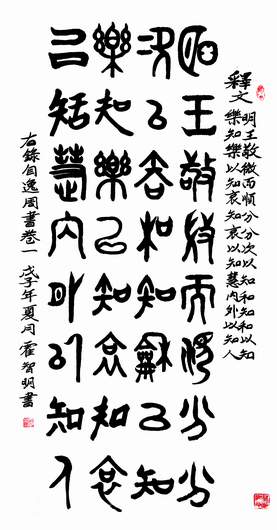 明王敬微而順分分
次以知和知龢以知
樂知樂以知哀知哀
以知慧內外以知人
釋文
明王敬微而順分分次以知和知和以知
樂知樂以知哀知哀以知慧內外以知人
右錄自逸周書卷一 戊子年夏月 霍智明書